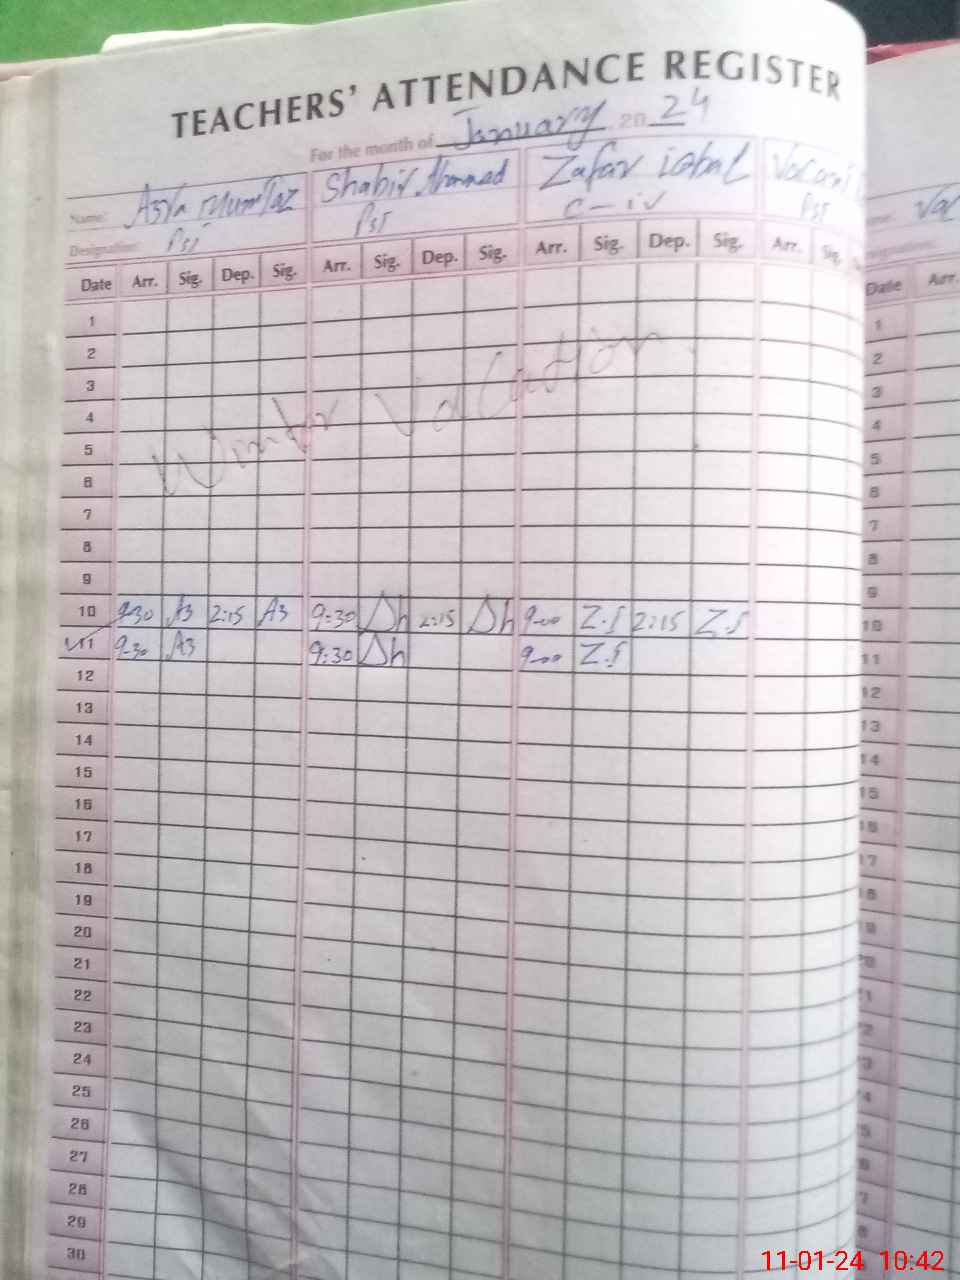 TEACHERS' ATTENDANCE REGISTER
For the month of January 2024
Name: Asya Mumtaz Shabir Ahmmad Zafar iqbal Vacant
Designation Pst Pst C-iv Pst
Date Arr. Sig. Dep. Sig. Arr. Sig. Dep. Sig. Arr. Sig. Dep. Sig. Arr. Sig. Date Arr.
1 1
2 2
3 3
4 4
5 5
6 6
7 7
8 8
9 9
Winter Vacation
10 9-30 A3 2:15 A3 9:30 Sh 2:15 Sh 9-00 Z.I 2:15 Z.I 10
11 9-30 A3 9:30 Sh 9-00 Z.I 11
12 12
13 13
14 14
15 15
16 16
17 17
18 18
19 19
20 20
21
22
23
24
25
26
27
28
29
30
11-01-24 10:42